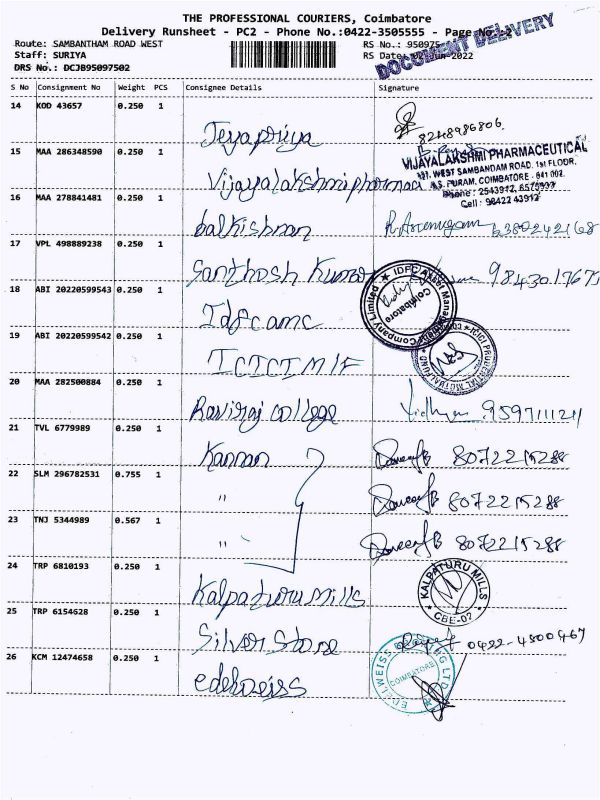 THE PROFESSIONAL COURIERS, Coimbatore
Delivery Runsheet - PC2 - Phone No.:0422-3505555 - Page No.:2
DOCUMENT DELIVERY
Route: SAMBANTHAM ROAD WEST
RS No.: 950975
Staff: SURIYA
RS Date: 02-Jun-2022
DRS No.: DCJB95097502
S No Consignment No Weight PCS Consignee Details Signature
14 KOD 43657 0.250 1
Jeyapriya 8248986806.
15 MAA 286348590 0.250 1
Vijayalakshmi pharmaci
VIJAYALAKSHMI PHARMACEUTICAL
WEST SAMBANDAM ROAD, 1st FLOOR,
R.S. PURAM, COIMBATORE - 641 002.
Phone : 2543912,
Cell : 98422 43912
16 MAA 278841481 0.250 1
balkishnan R. Arumugam 6380242168
17 VPL 498889238 0.250 1
Santhosh Kumar
18 ABI 20220599543 0.250 1
Idfc amc
IDFC Asset Management Company Limited
Coimbatore
19 ABI 20220599542 0.250 1
ICICI M/F
ICICI PRUDENTIAL MUTUAL FUND
20 MAA 282500884 0.250 1
Raviraj college Vidhya 9597111211
21 TVL 6779989 0.250 1
Kannan 8072215288
22 SLM 296782531 0.755 1
" 8072215288
23 TNJ 5344989 0.567 1
" 8072215288
24 TRP 6810193 0.250 1
Kalpaturu mills
KALPATURU MILLS
CBE-02
25 TRP 6154628 0.250 1
Silver Stone 0422-4300467
26 KCM 12474658 0.250 1
edelweiss
EDELWEISS BROKING LTD
COIMBATORE